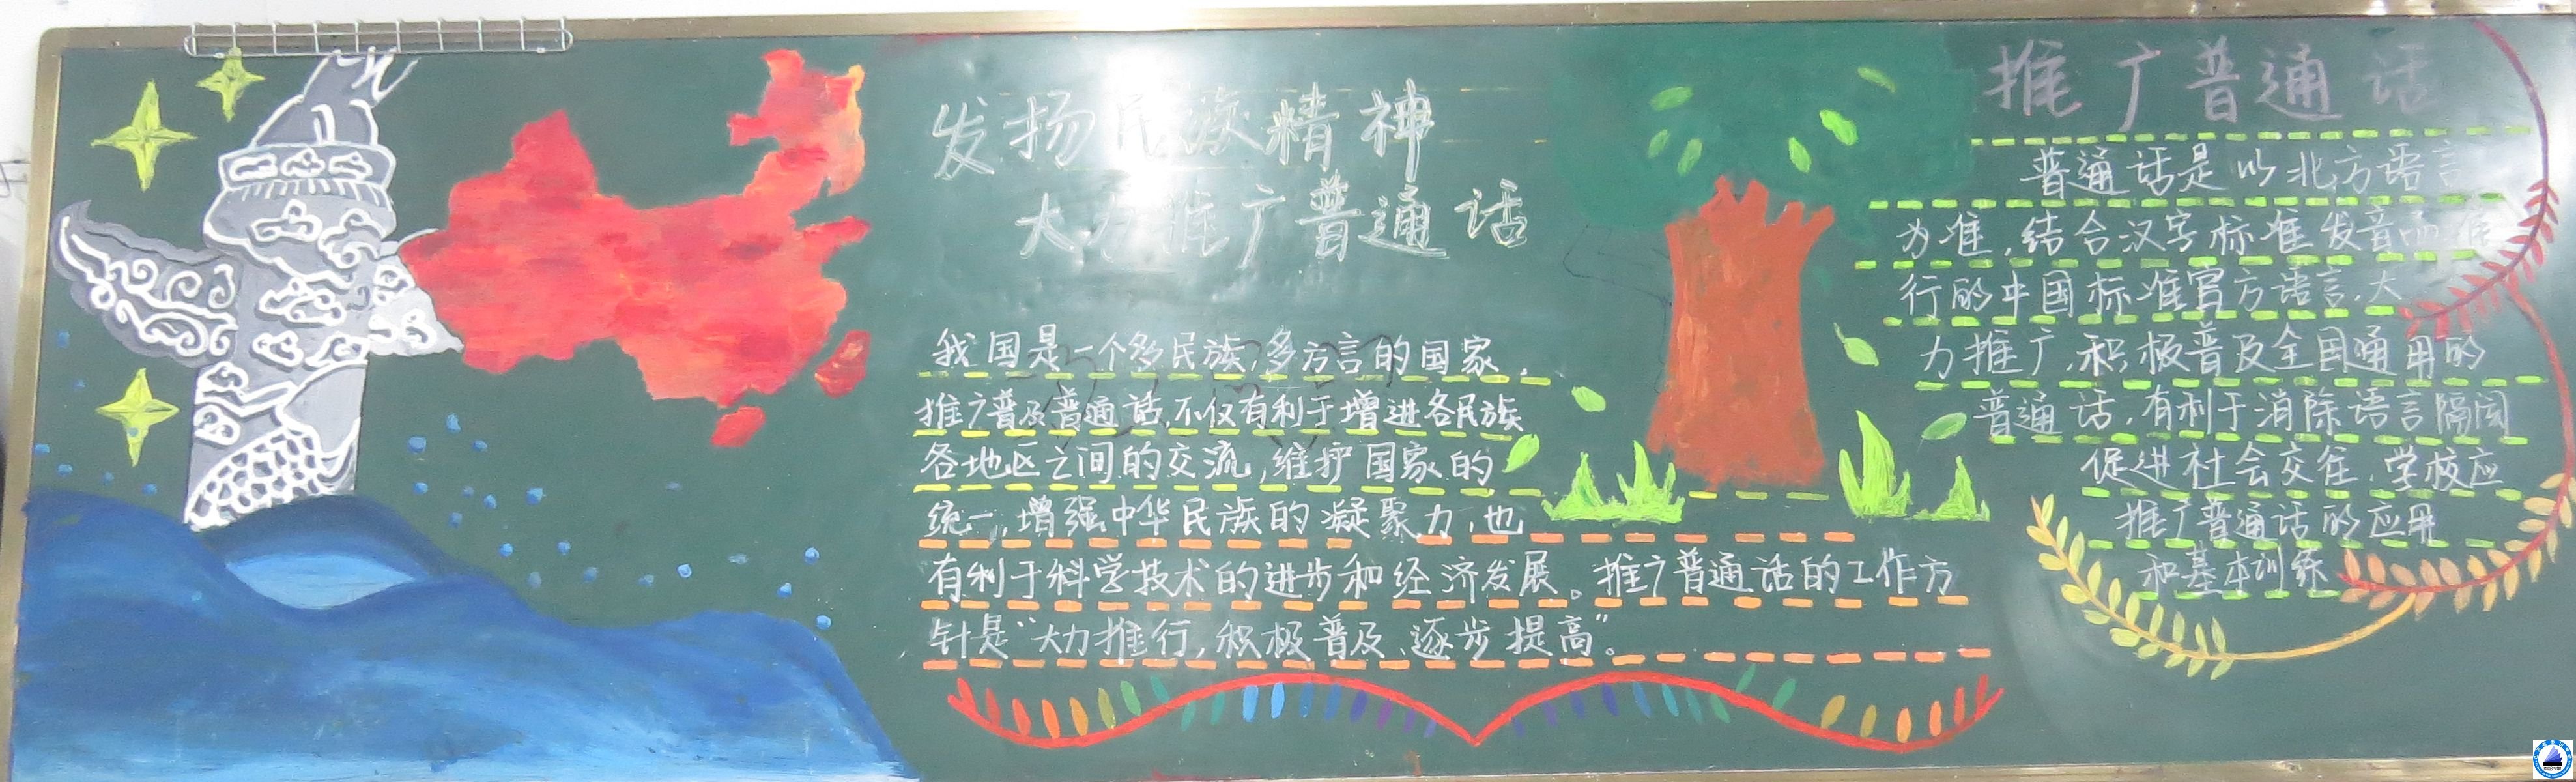 发扬民族精神
大力推广普通话
我国是一个多民族,多方言的国家,
推广普及普通话不仅有利于增进各民族
各地区之间的交流,维护国家的
统一,增强中华民族的凝聚力,也
有利于科学技术的进步和经济发展。推广普通话的工作方
针是“大力推行,积极普及,逐步提高”。
推广普通话
普通话是以北方语言
为准,结合汉字标准发音而
行的中国标准官方语言,大
力推广,积极普及全国通用的
普通话,有利于消除语言隔阂
促进社会交往,学校应
推广普通话的应用
和基本训练